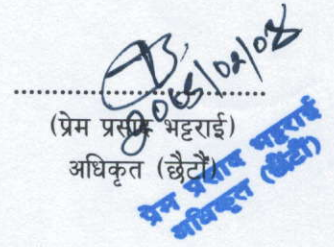 २०६५/०२/०८
(प्रेम प्रसाद भट्टराई)
अधिकृत (छैटौं)
प्रेम प्रसाद भट्टराई
अधिकृत (छैटौं)